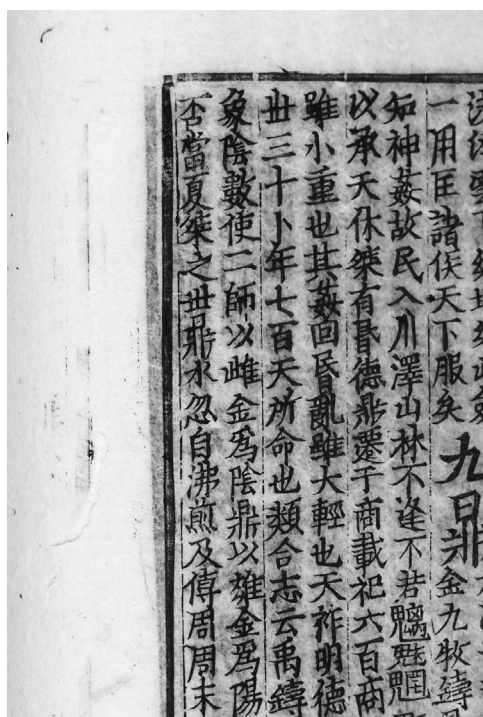 一用匡諸侯天下服矣九鼎金九牧鑄
知神姦故民入川澤山林不逢不若魑魅魍
以承天休桀有昬德鼎遷于商載祀六百商
雖小重也其姦回昬亂雖大輕也天祚明德
丗三十卜年七百天所命也類合志云禹鑄
象陰數使二師以雌金爲陰鼎以雄金爲陽
否當夏桀之丗鼎水忽自沸煎及傳周周末